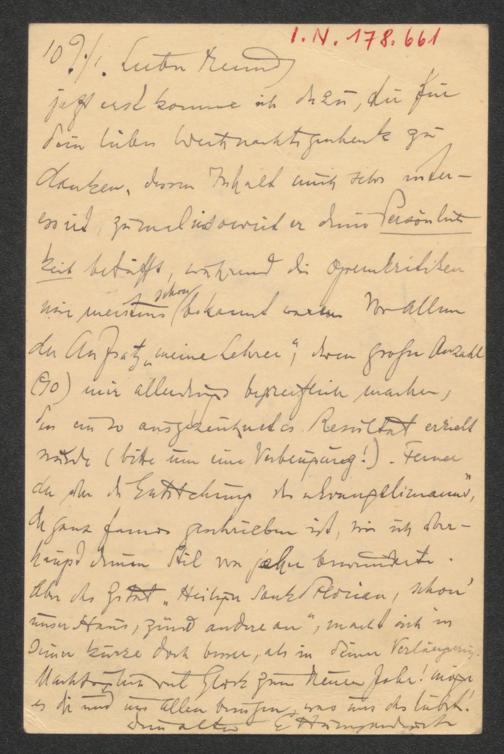 I.N. 178.661
10 9./1. Lieber Freund,
jetzt erst komme ich dazu, dir für
dein liebes Weihnachtsgeschenk zu
danken, dessen Inhalt mich sehr inter-
essirt, zumal insoweit er deine Persönlich
keit betrifft, während die Opernkritiken
mir meistens schon bekannt waren. Vor Allem
der Aufsatz „meine Lehrer", deren große Anzahl
(90) mir allerdings begreiflich machen,
das ein so ausgezeichnetes Resultat erzielt
wurde (bitte um eine Verbeugung!). Ferner
der über die Entstehung des „Evangelimann",
der ganz famos geschrieben ist, wie ich über-
haupt deinen Stil von jeher bewunderte.
Aber das „Heiliger Sankt Florian, schon'
unser Haus, zünd andere an", macht sich in
seiner Kürze doch besser, als in deiner Verlängerung.
viel Glück zum Neuen Jahr! möge
es dir und uns Allen bringen, was uns das liebste!
Dein alter EHumperdinck